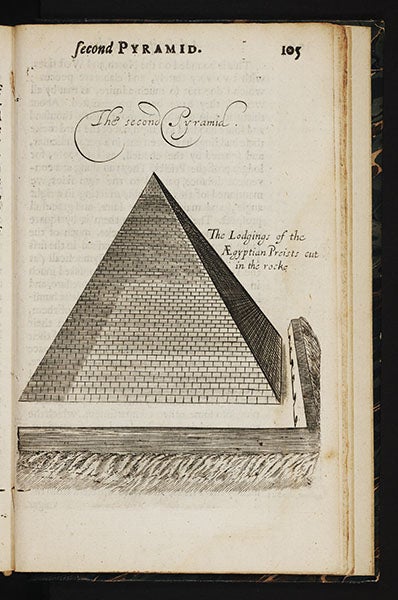 second PYRAMID. 105
The second Pyramid.
The Lodgings of the
Ægyptian Preists cut
in the rocke